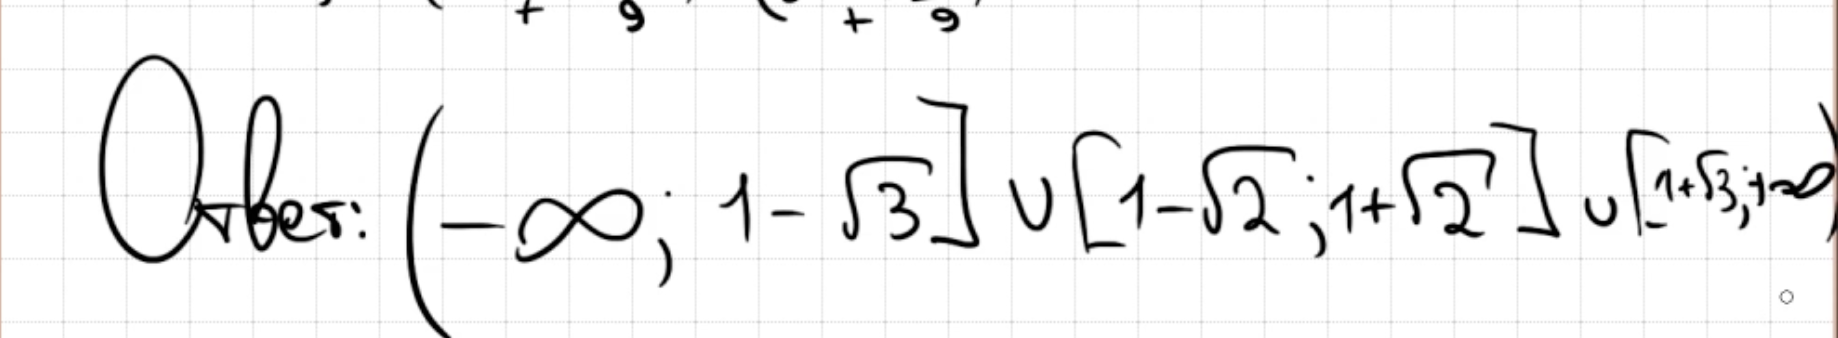 + 9 + 9
Ответ: (-∞; 1-√3] ∪ [1-√2; 1+√2] ∪ [1+√3; +∞)